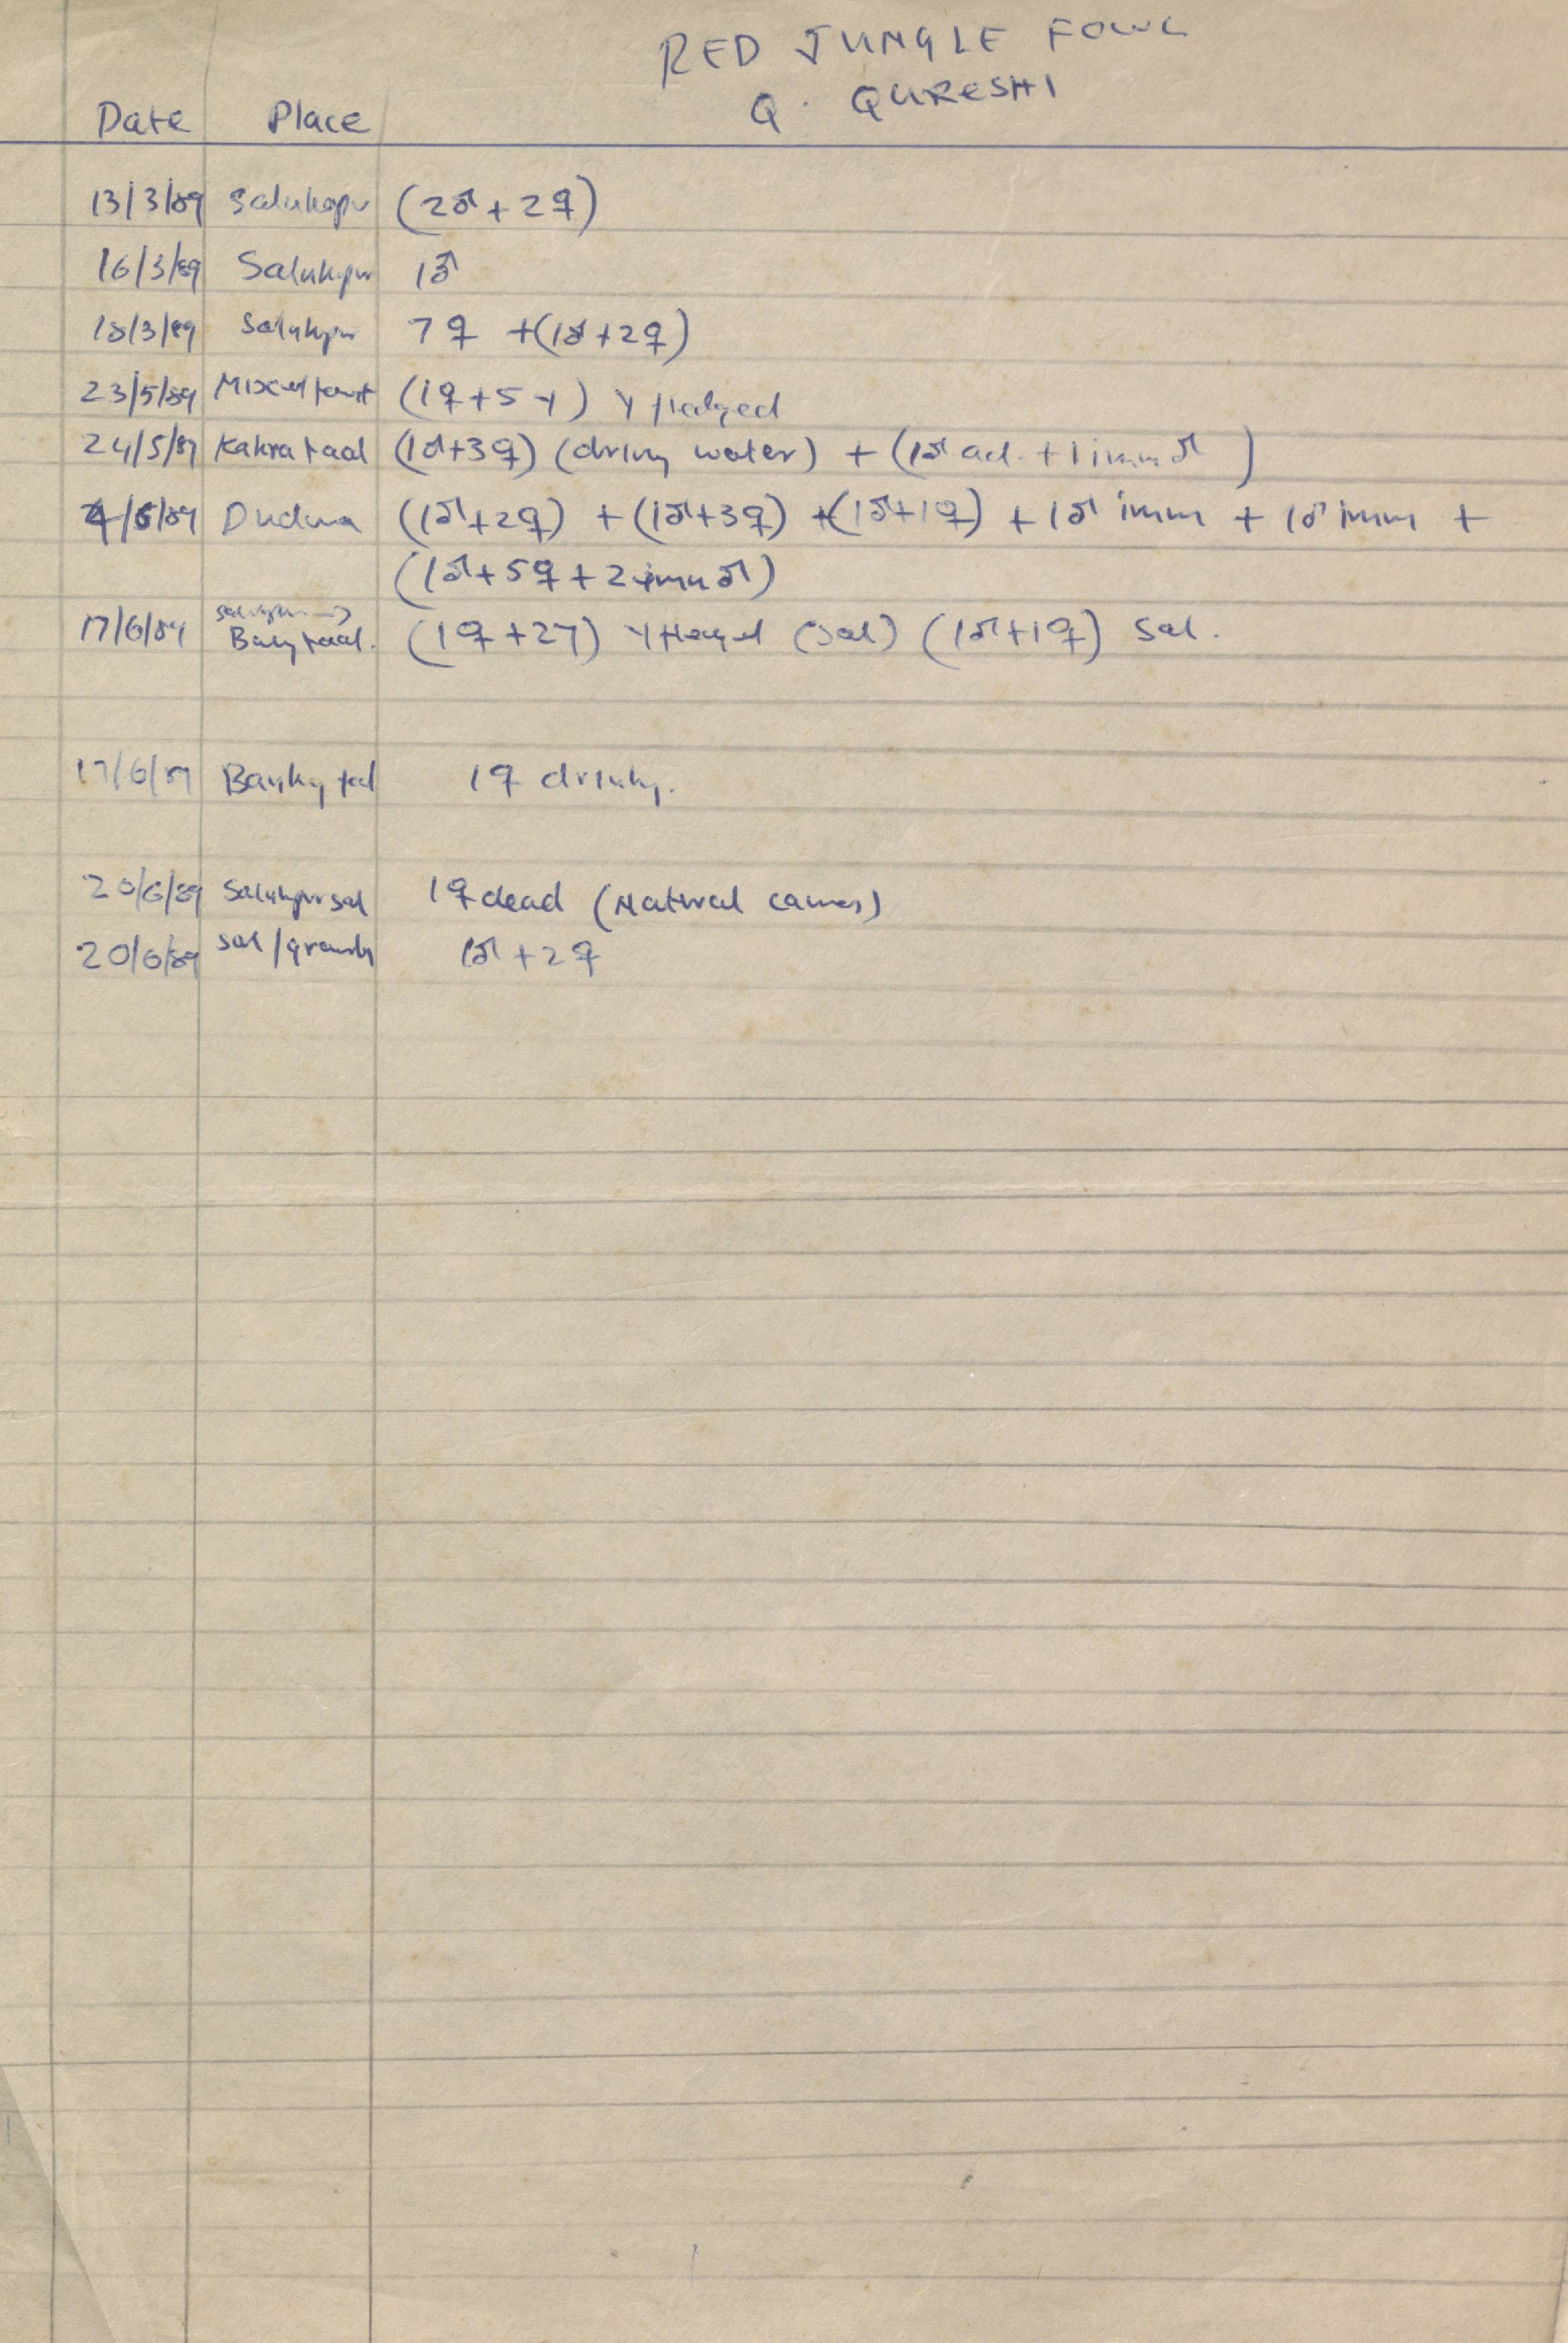 RED JUNGLE FOWL
Q. QURESHI
Date Place
13/3/89 Salukapur (2♂ + 2♀)
16/3/89 Salukpur 1♂
18/3/89 Salukpur 7♀ + (1♂ + 2♀)
23/5/89 (1♀ + 5Y) Y fledged
24/5/89 Kakra taal (1♂ + 3♀) (drinng water) + (1♂ ad. + 1 imm ♂)
4/6/89 Dudwa (1♂ + 2♀) + (1♂ + 3♀) + (1♂ + 1♀) + 1♂ imm + 1♂ imm +
(1♂ + 5♀ + 2 imm ♂)
17/6/89 taal. (1♀ + 2Y) Y (Sal) (1♂ + 1♀) Sal.
17/6/89 Banky tal 1♀ drinkg.
20/6/89 Salukpur sal 1♀ dead (Natural causes)
20/6/89 Sal / 1♂ + 2♀